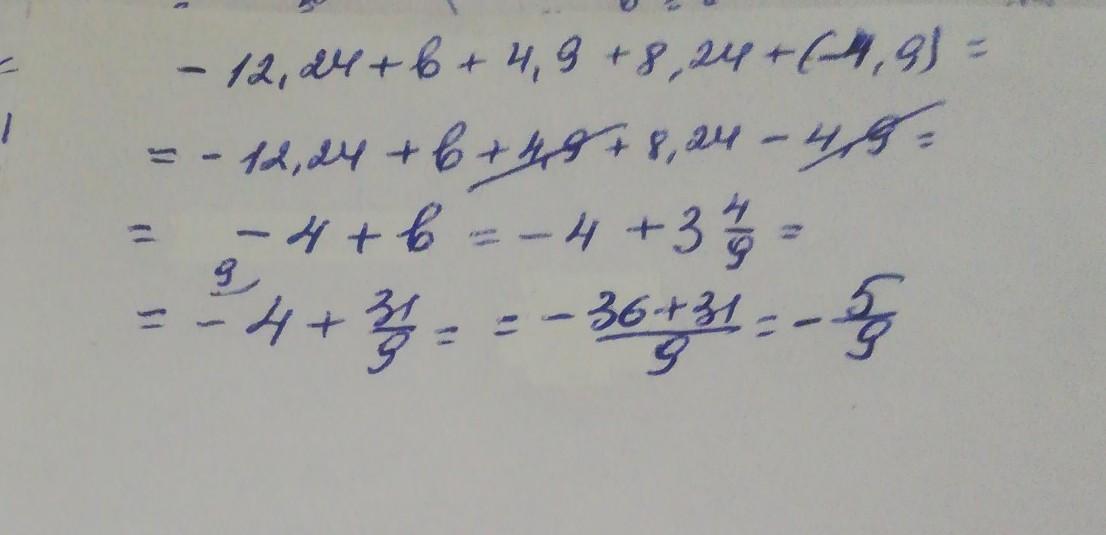 - 12,24 + b + 4,9 + 8,24 + (-4,9) =
= - 12,24 + b + 4,9 + 8,24 - 4,9 =
= - 4 + b = - 4 + 3 4/9 =
9
= - 4 + 31/9 = = - 36+31/9 = - 5/9